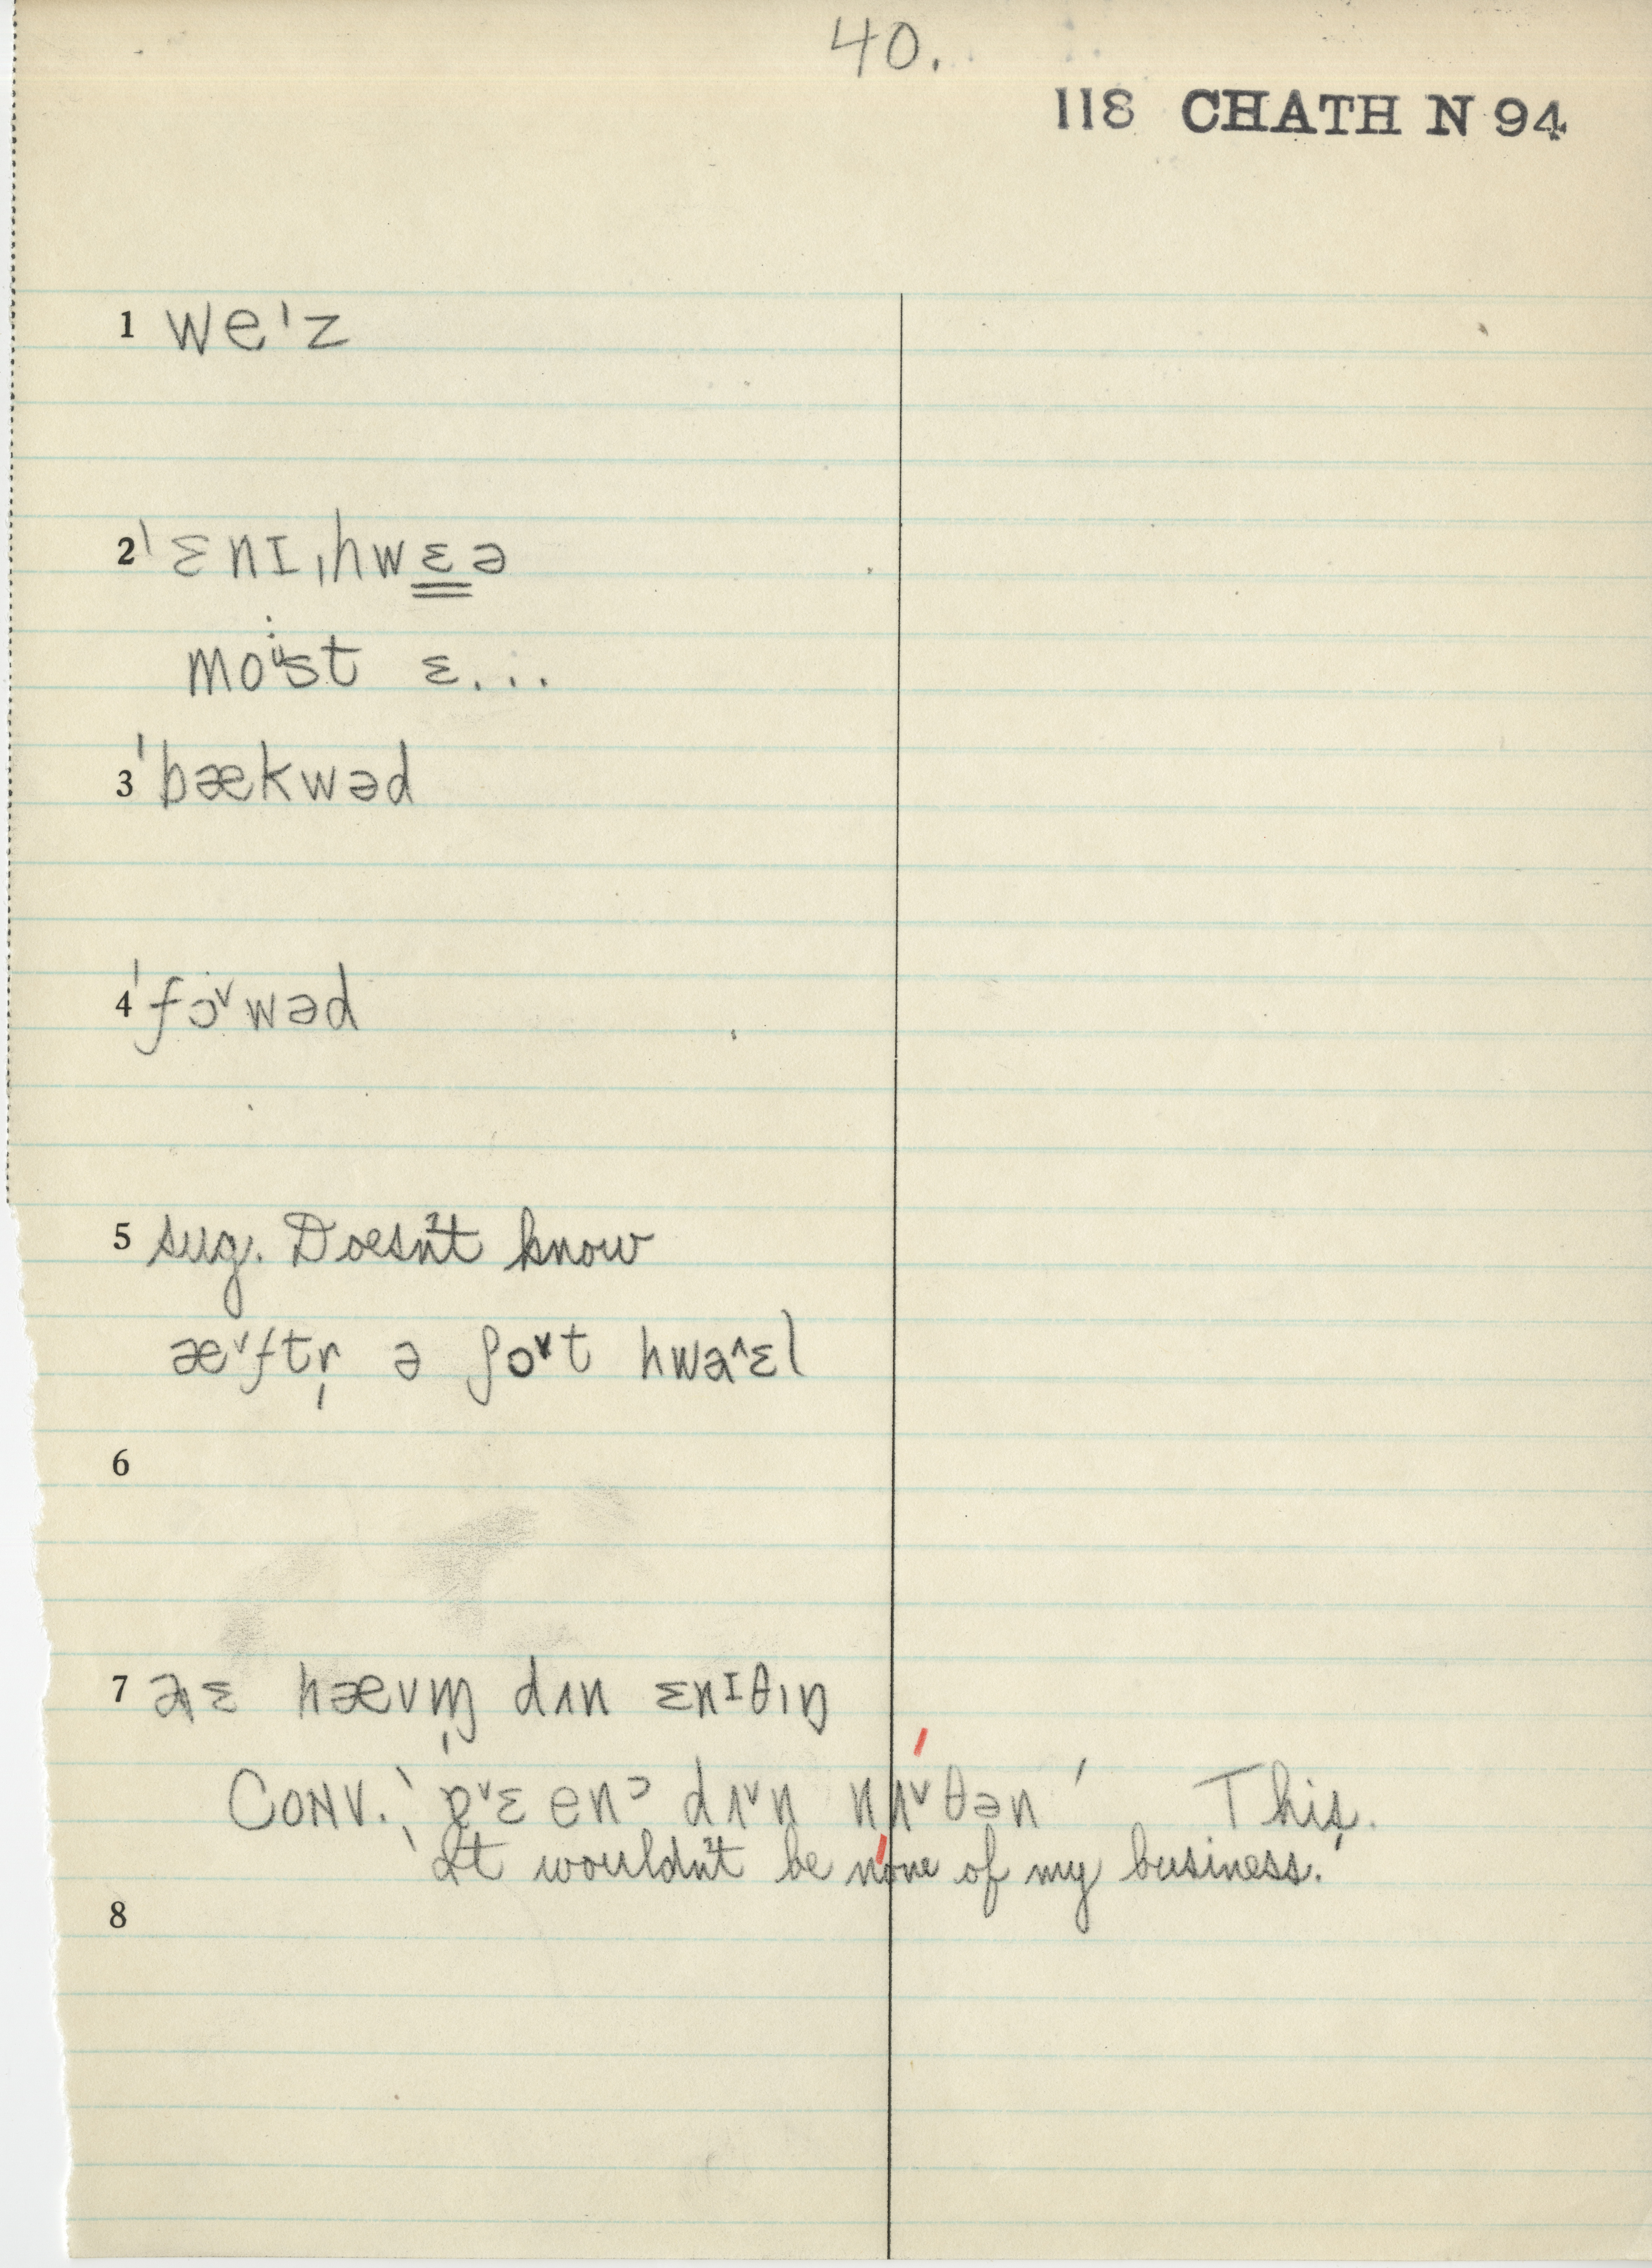 40.
118 CHATH N 94
1 weˈz
2 ˈɛnɪˌhwɛ̳ə
moᵘ̈st ɛ...
3 ˈbækwəd
4 ˈfɔ˅wəd
5 sug. Doesn't know
æ˅ftr̩ ə ʃɔ˅t hwa^ɛl
6
7 hævm̩ dʌn ɛnᶦθɪŋ
Conv. dʌ˅n nʌ˅θən This.
'It wouldn't be none of my business.'
8